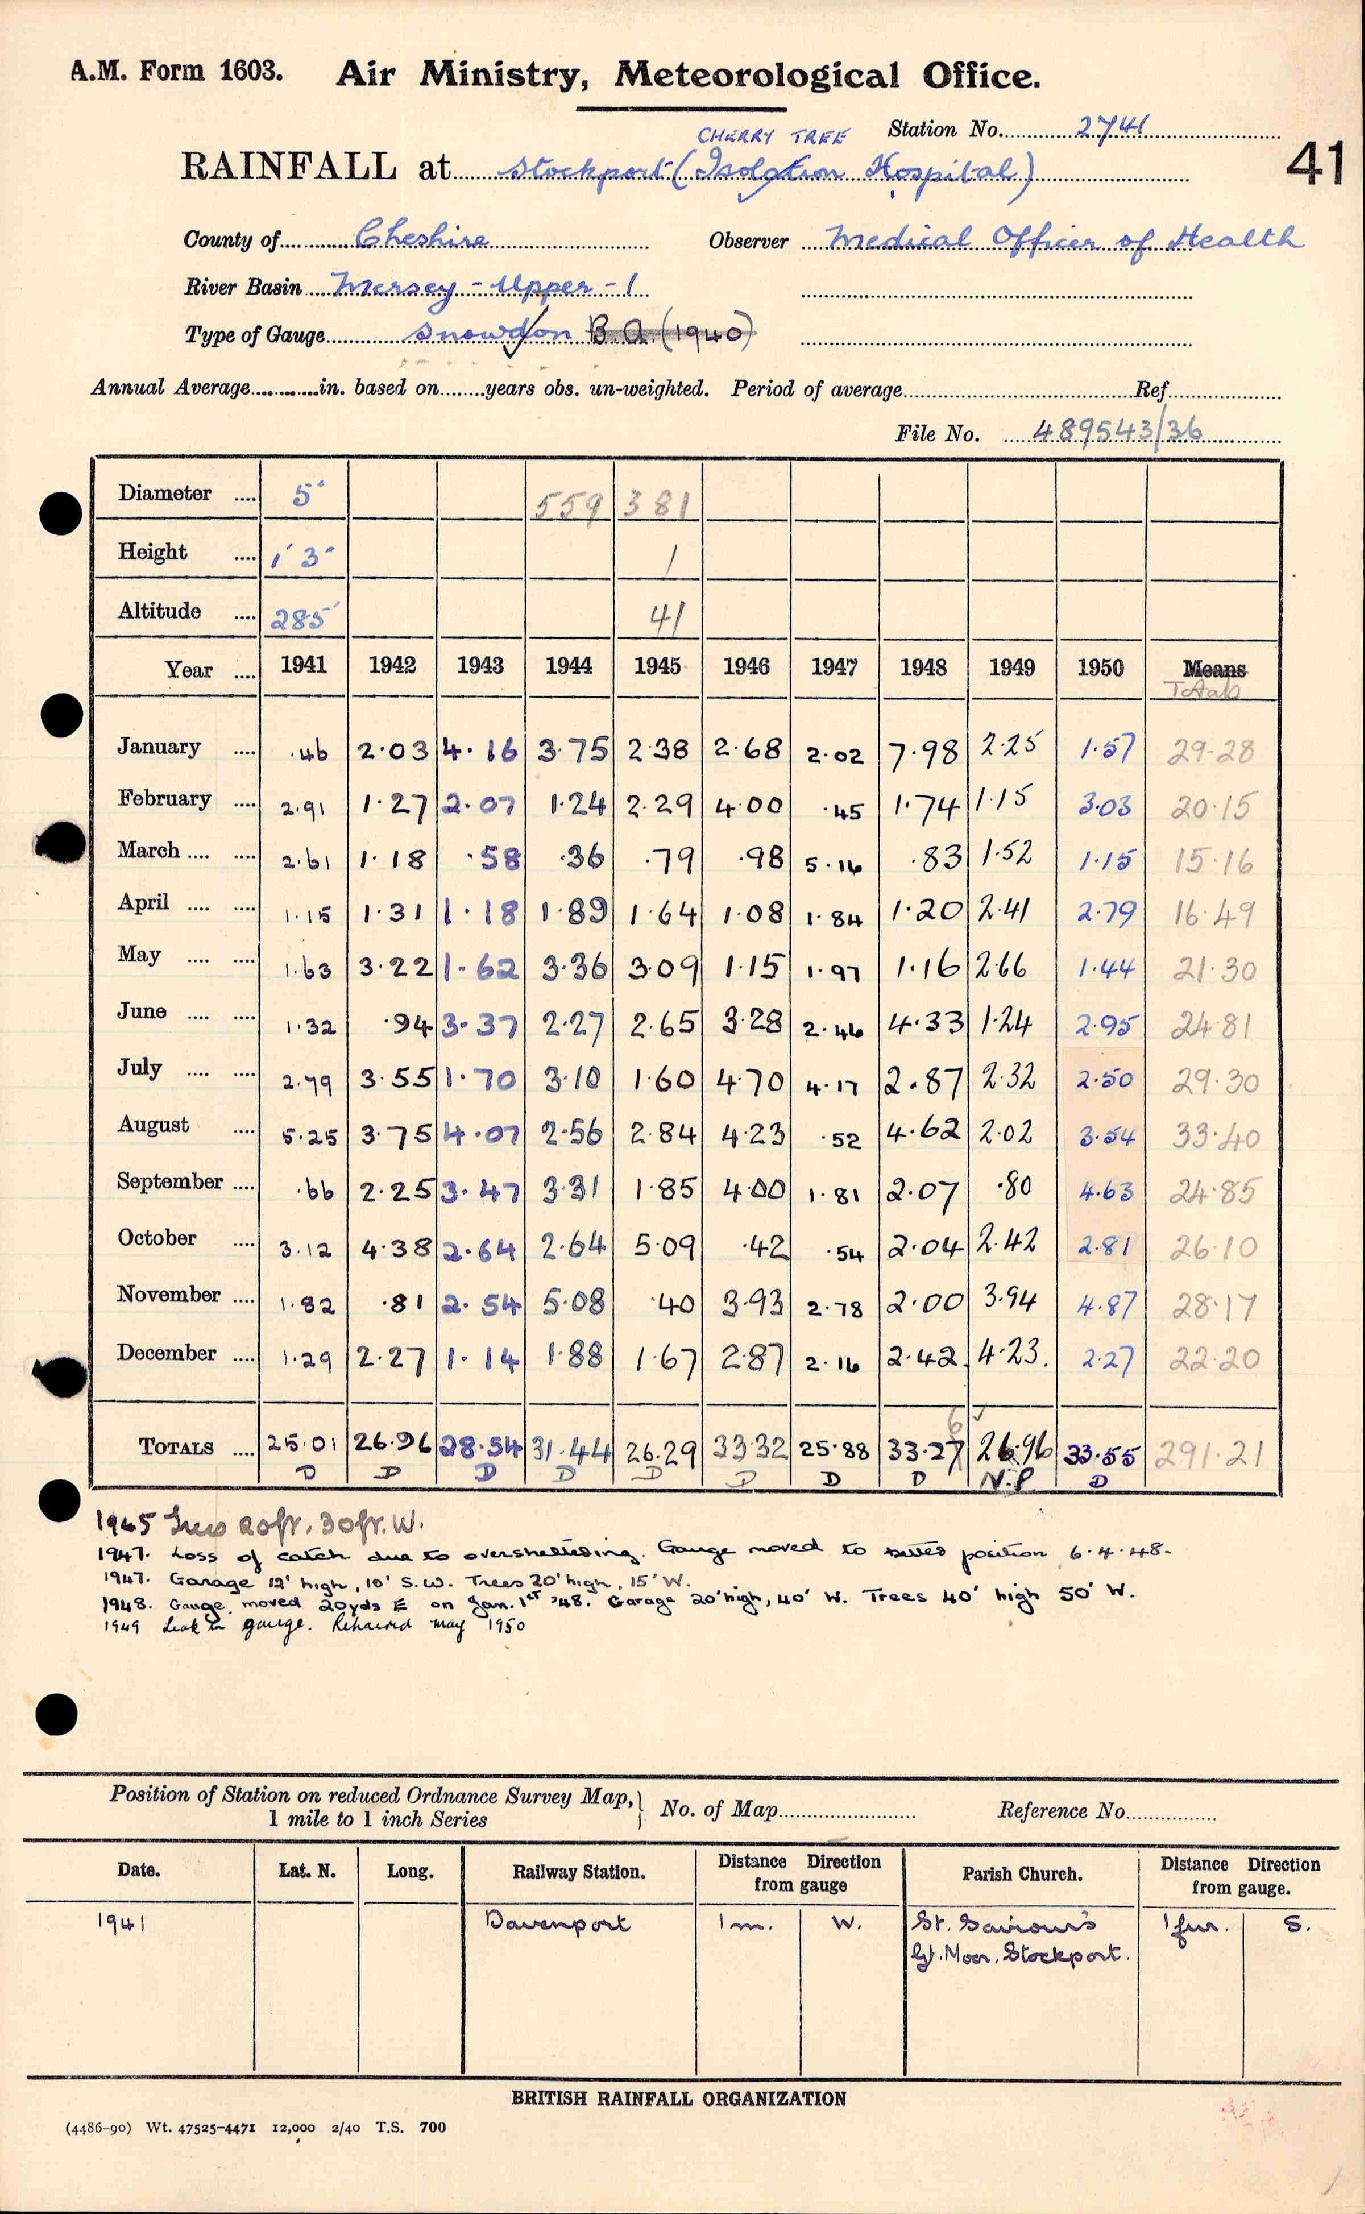 A.M. Form 1603. Air Ministry, Meteorological Office.
Station No. 2741
41
CHERRY TREE
RAINFALL at Stockport (Isolation Hospital)
County of Cheshire Observer Medical Officer of Health
River Basin Mersey - Upper - 1
Type of Gauge Snowdon B A (1940)
Annual Average in. based on years obs. un-weighted. Period of average Ref.
File No. 489543/36
Diameter 5" 559 381
Height 1' 3" 1
Altitude 285' 41
Year 1941 1942 1943 1944 1945 1946 1947 1948 1949 1950 Means
Totals
January .46 2.03 4.16 3.75 2.38 2.68 2.02 7.98 2.25 1.57 29.28
February 2.91 1.27 2.07 1.24 2.29 4.00 .45 1.74 1.15 3.03 20.15
March 2.61 1.18 .58 .36 .79 .98 5.16 .83 1.52 1.15 15.16
April 1.15 1.31 1.18 1.89 1.64 1.08 1.84 1.20 2.41 2.79 16.49
May 1.63 3.22 1.62 3.36 3.09 1.15 1.97 1.16 2.66 1.44 21.30
June 1.32 .94 3.37 2.27 2.65 3.28 2.46 4.33 1.24 2.95 24.81
July 2.79 3.55 1.70 3.10 1.60 4.70 4.17 2.87 2.32 2.50 29.30
August 5.25 3.75 4.07 2.56 2.84 4.23 .52 4.62 2.02 3.54 33.40
September .66 2.25 3.47 3.31 1.85 4.00 1.81 2.07 .80 4.63 24.85
October 3.12 4.38 2.64 2.64 5.09 .42 .54 2.04 2.42 2.81 26.10
November 1.82 .81 2.54 5.08 .40 3.93 2.78 2.00 3.94 4.87 28.17
December 1.29 2.27 1.14 1.88 1.67 2.87 2.16 2.42 4.23 2.27 22.20
6
TOTALS 25.01 26.96 28.54 31.44 26.29 33.32 25.88 33.27 26.96 33.55 291.21
D D D D D D D D N.P D
1945 Trees 20ft, 30ft. W.
1947. Loss of catch due to oversheltering. Gauge moved to better position 6.4.48.
1947. Garage 12' high, 10' S.W. Trees 20' high, 15' W.
1948. Gauge moved 20yds E on Jan. 1st '48. Garage 20' high, 40' W. Trees 40' high 50' W.
1949 Leak in gauge. Repaired May 1950
Position of Station on reduced Ordnance Survey Map, 1 mile to 1 inch Series No. of Map Reference No.
Date. Lat. N. Long. Railway Station. Distance Direction from gauge Parish Church. Distance Direction from gauge.
1941 Davenport 1 m. W. St. Saviour's 1 fur. S.
Gt. Moor, Stockport.
BRITISH RAINFALL ORGANIZATION
(4486-90) Wt. 47525-4471 12,000 2/40 T.S. 700